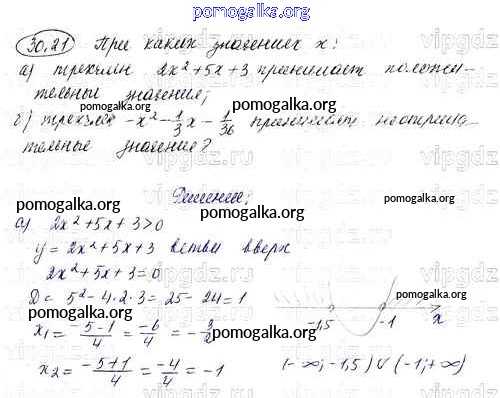 pomogalka.org
30.21 При каких значениях x:
а) трехчлен 2x²+5x+3 принимает положи-
тельные значения;
pomogalka.org
б) трехчлен -x² - 1/3 x - 1/36 принимает неотрица-
тельные значения?
pomogalka.org
Решение;
pomogalka.org pomogalka.org
а) 2x²+5x+3>0
y = 2x²+5x+3 ветви вверх
2x²+5x+3=0
pomogalka.org
D = 5²-4·2·3=25-24=1
x₁ = (-5-1)/4 = -6/4 = -3/2
pomogalka.org
-1,5 -1 x
x₂ = (-5+1)/4 = -4/4 = -1 (-∞; -1,5) ∪ (-1; +∞)
pomogalka.org